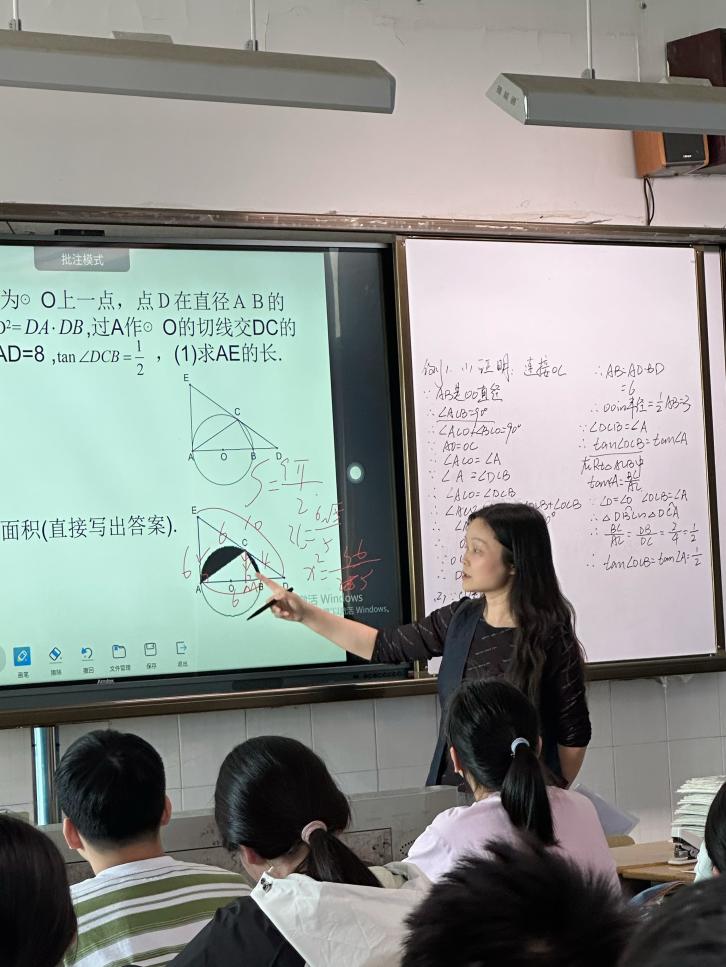 批注模式
为⊙ O上一点，点D在直径AB的
D²=DA·DB,过A作⊙ O的切线交DC的
AD=8 ,tan∠DCB=1/2 ，(1)求AE的长.
E
C
A O B D
面积(直接写出答案).
E
C
A O B D
6
6
10
6
S=9π/2
激活 Windows
Windows。
画笔 擦除 撤回 文件管理 保存 退出
例1. (1) 证明：连接OC
∵ AB是⊙O直径
∴ ∠ACB=90°
∴ ∠ACO+∠BCO=90°
∵ AO=OC
∴ ∠ACO=∠A
∵ ∠A=∠DCB
∴ ∠ACO=∠DCB
∴ AB=AD-BD
=6
∴ ⊙O的半径=1/2AB=3
∵ ∠DCB=∠A
∴ tan∠DCB=tan∠A
在Rt△ACB中
tan∠A=BC/AC
∵ ∠D=∠D ∠DCB=∠A
∴ △DBC∽△DCA
∴ BC/AC=DB/DC=2/4=1/2
∴ tan∠DCB=tan∠A=1/2